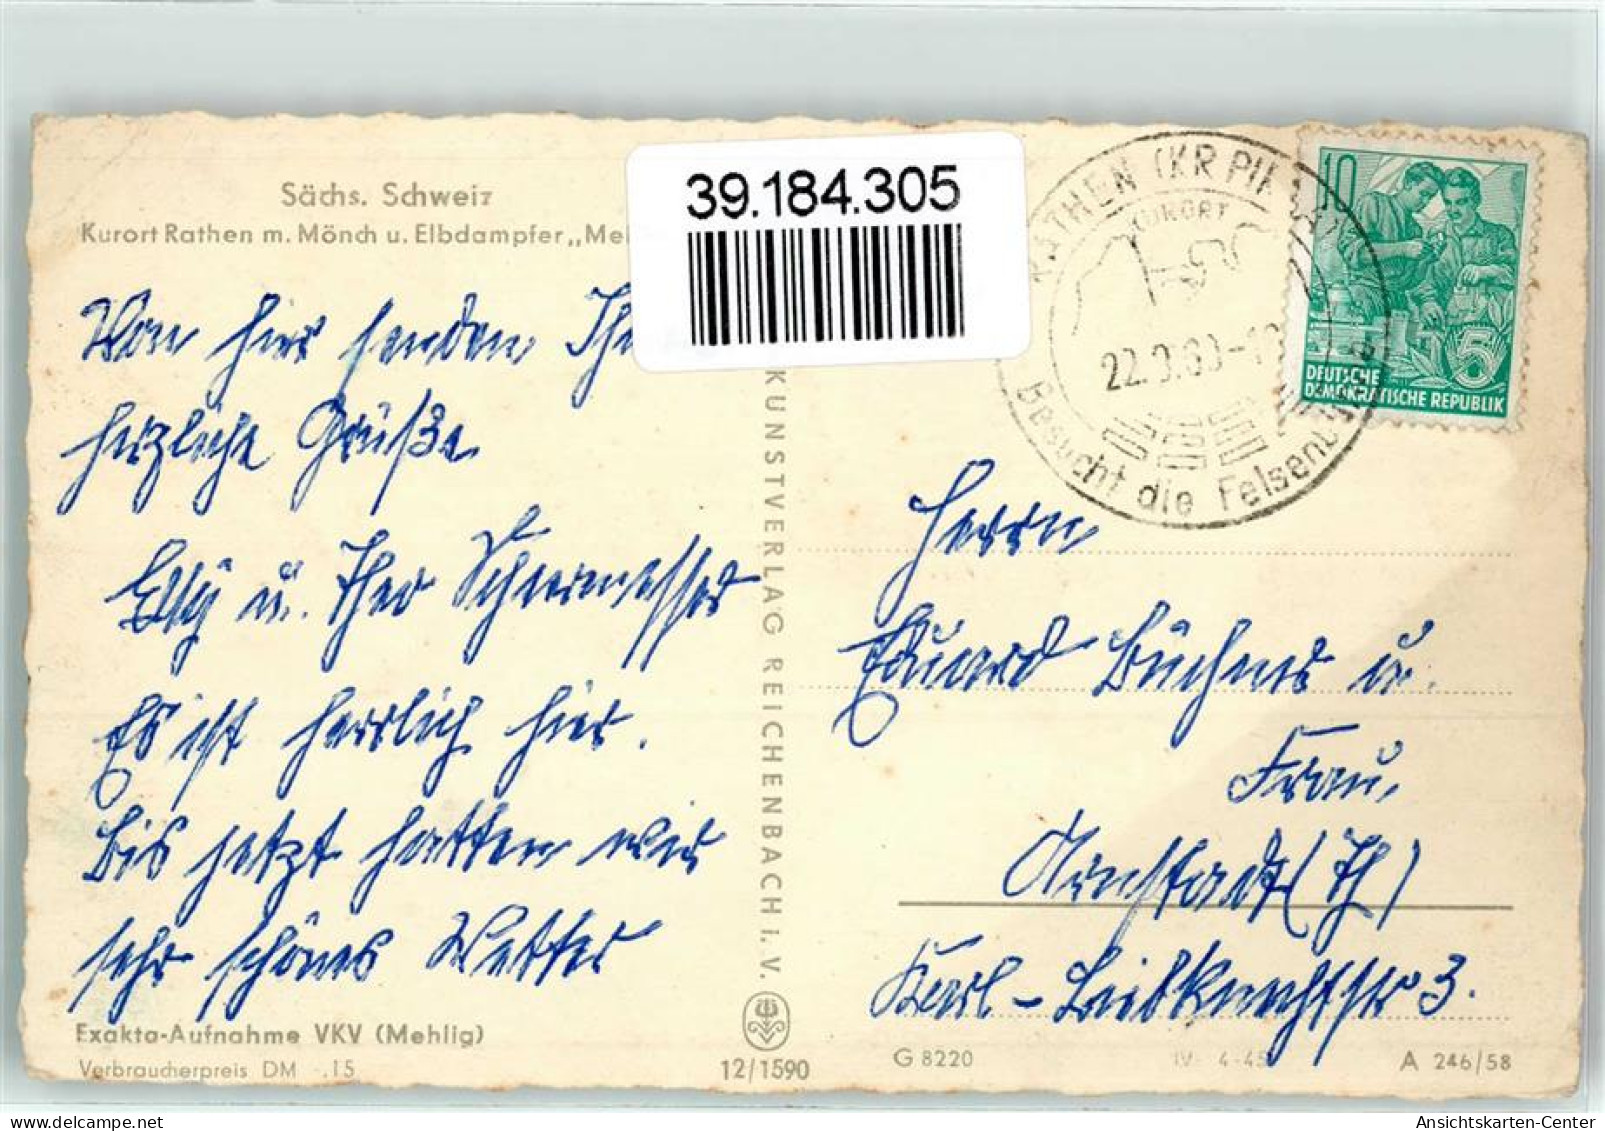 Sächs. Schweiz
Kurort Rathen m. Mönch u. Elbdampfer „Me
39.184.305
Von hier senden Ihnen
herzliche Grüße
Elly u. Theo Scheermesser
Es ist herrlich hier.
Bis jetzt hatten wir
sehr schönes Wetter
Exakta-Aufnahme VKV (Mehlig)
Verbraucherpreis DM -.15
KUNSTVERLAG REICHENBACH i. V.
12/1590
RATHEN (KR PIRNA)
KURORT
22.9.60-1
Besucht die Felsenbühne
10
5
DEUTSCHE
DEMOKRATISCHE REPUBLIK
Herrn
Eduard Büchner u.
Frau,
Arnstadt (Th)
Karl-Liebknechtstr 3.
G 8220
IV 4-45
A 246/58
delcampe.net
Ansichtskarten-Center